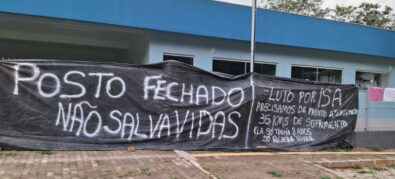 POSTO FECHADO
NÃO SALVA VIDAS
LUTO POR ISA
PRECISAMOS DE PRONTO ATENDIMENTO
36 KMS DE SOFRIMENTO
ELA SÓ TINHA 8 ANOS
SÓ QUERIA VIVER